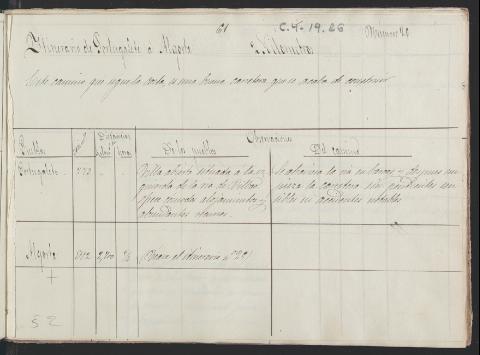 61
C.4-19.26
Número 20
Itinerario de Portugalete a Algorta
2 Kilómetros
Este camino que sigue la costa, es una buena carretera que se acaba de construir
Pueblos
Distancias
Horas
Observaciones
De los pueblos
Del camino
Portugalete
Villa abierta situada a la iz-
quierda de la ria de Bilbao,
ofrece comodos alojamientos y
abundantes recursos.
Se atraviesa la ria en barcas y despues em-
pieza la carretera sin pendientes sen-
sibles ni accidentes notables
Algorta
(Vease el itinerario nº 29)
52